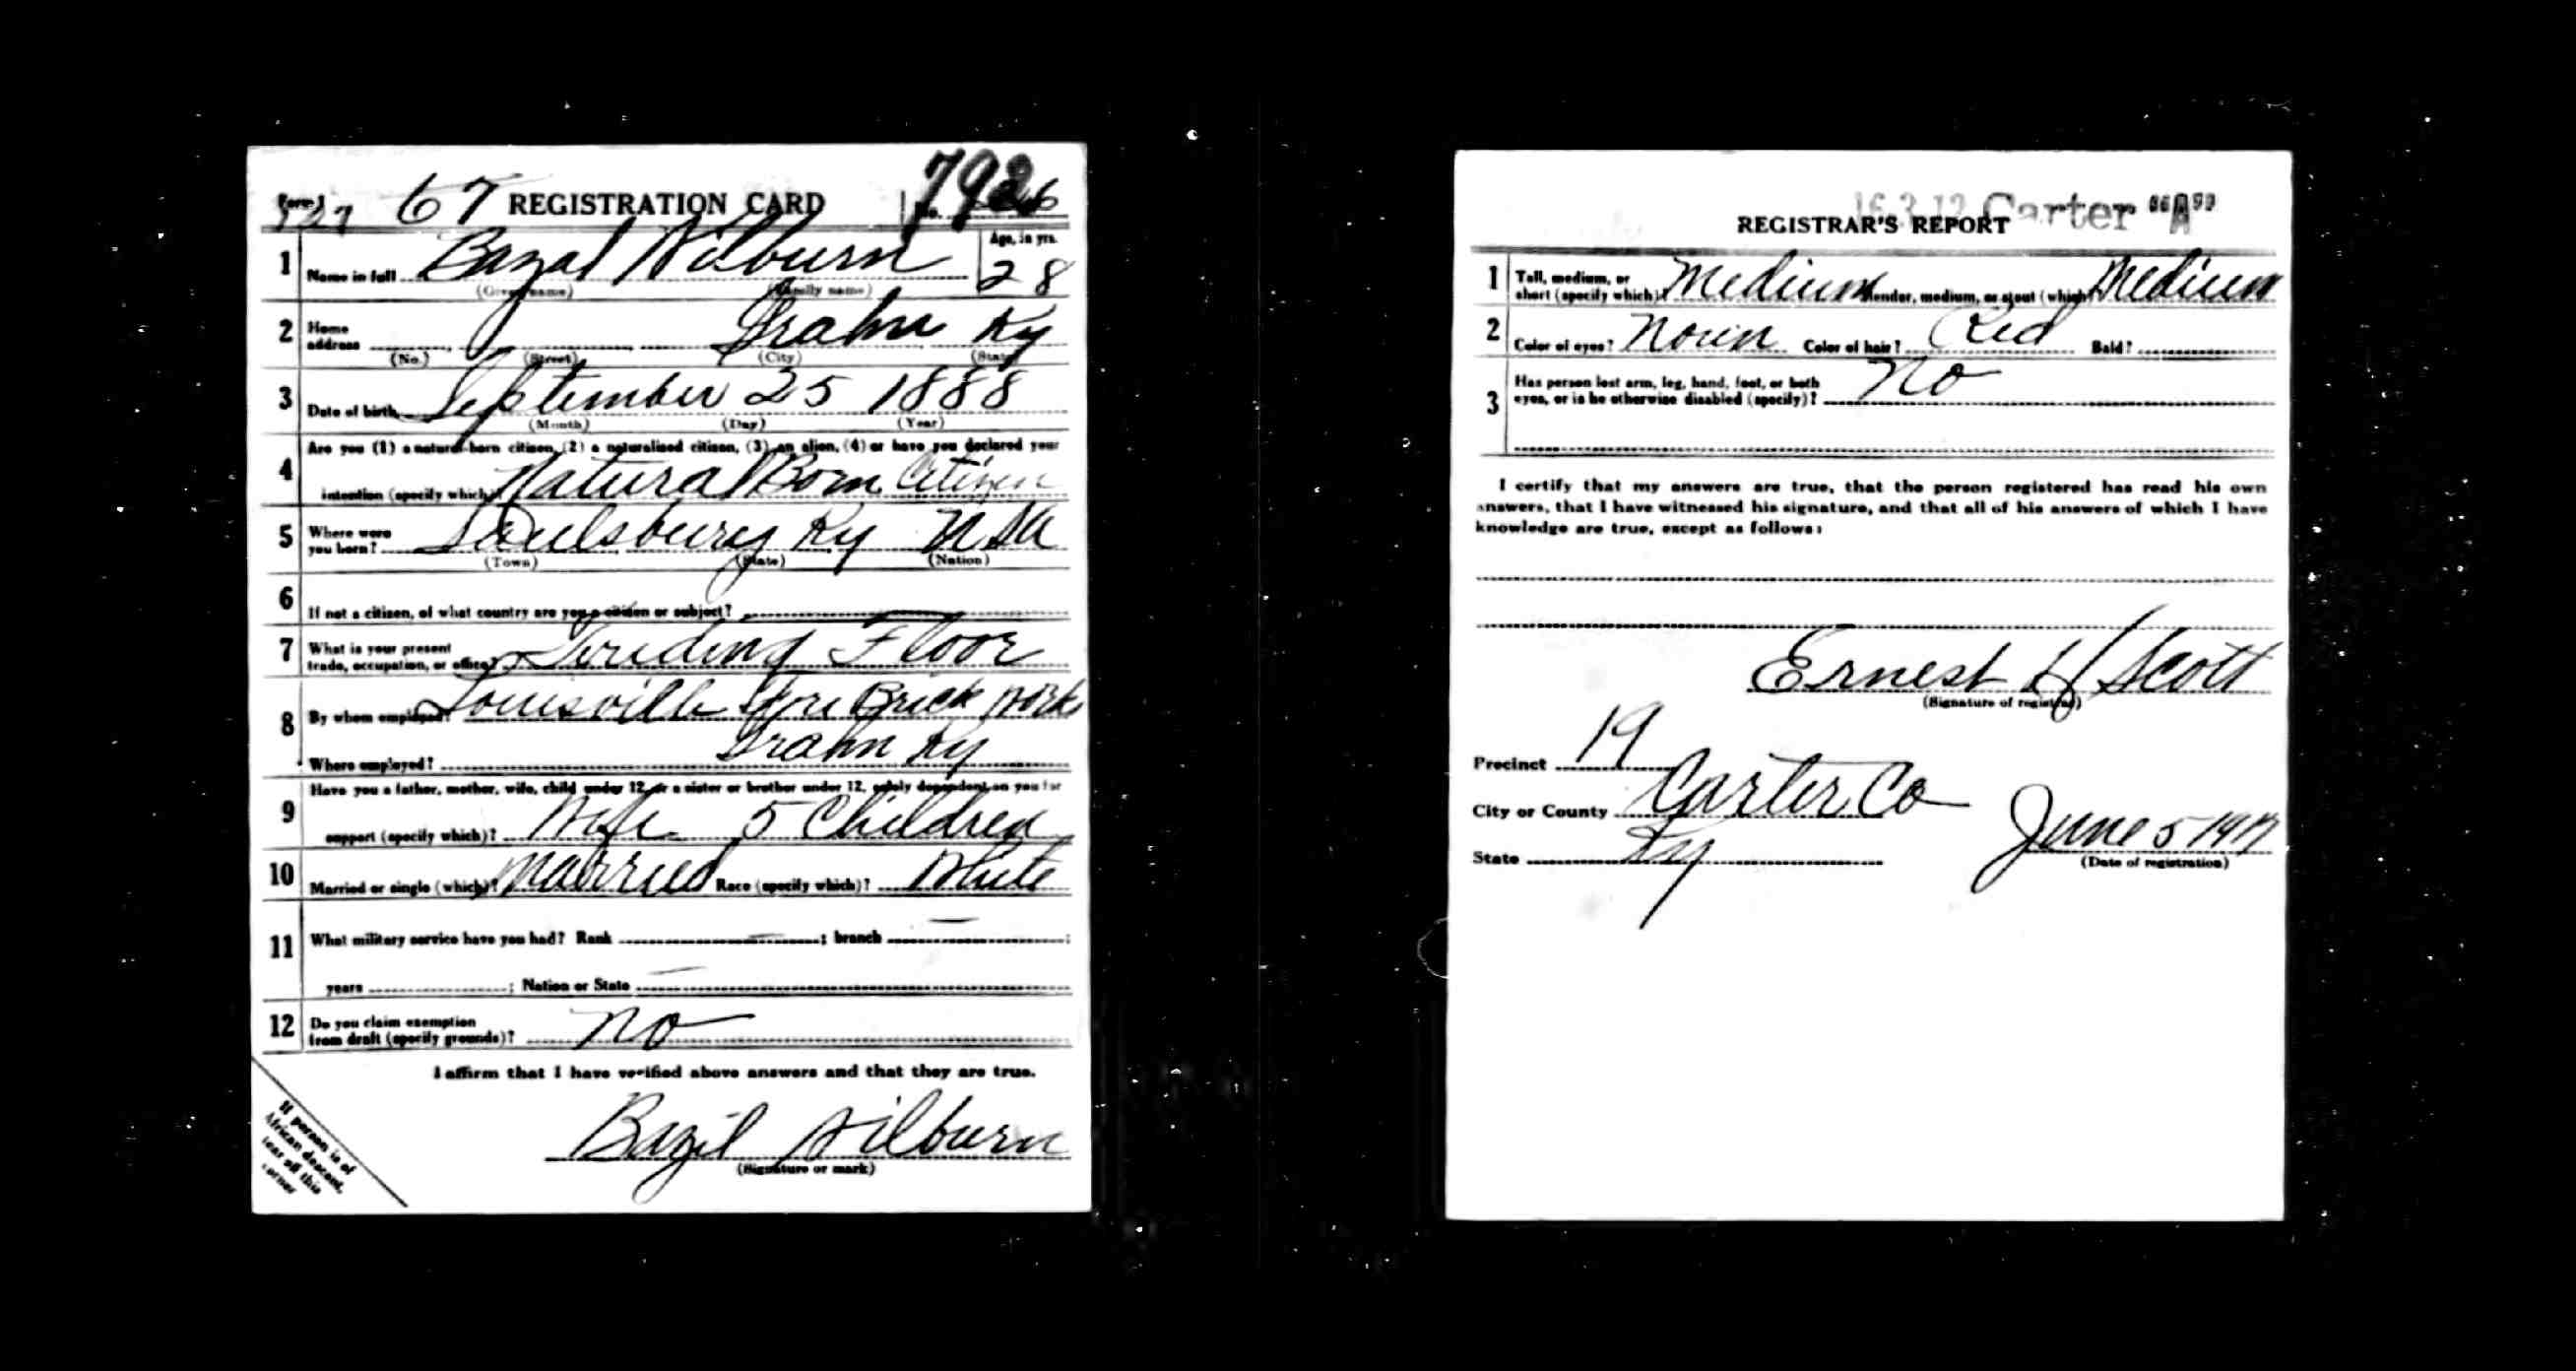 Form 1 67 REGISTRATION CARD No. 792
1 Name in full Bazal Wilburn Age, in yrs. 28
(Given name) (Family name)
2 Home address Grahn Ky
(No.) (Street) (City) (State)
3 Date of birth September 25 1888
(Month) (Day) (Year)
Are you (1) a natural-born citizen, (2) a naturalized citizen, (3) an alien, (4) or have you declared your
4 intention (specify which)? Natural Born Citizen
5 Where were you born? Saulsburry Ky USA
(Town) (State) (Nation)
6 If not a citizen, of what country are you a citizen or subject?
7 What is your present trade, occupation, or office? Tending Floor
8 By whom employed? Louisville Fire Brick Works
Where employed? Grahn Ky
Have you a father, mother, wife, child under 12, or a sister or brother under 12, solely dependent on you for
9 support (specify which)? Wife 5 Children
10 Married or single (which)? Married Race (specify which)? White
11 What military service have you had? Rank — ; branch — ;
years ; Nation or State —
12 Do you claim exemption from draft (specify grounds)? No
I affirm that I have verified above answers and that they are true.
Bazil Wilburn
(Signature or mark)
If person is of
African descent,
tear off this
corner
16 3 12 Carter "A"
REGISTRAR'S REPORT
1 Tall, medium, or short (specify which)? Medium Slender, medium, or stout (which)? Medium
2 Color of eyes? Color of hair? Red Bald?
3 Has person lost arm, leg, hand, foot, or both eyes, or is he otherwise disabled (specify)? No
I certify that my answers are true, that the person registered has read his own
answers, that I have witnessed his signature, and that all of his answers of which I have
knowledge are true, except as follows:
Ernest H Scott
(Signature of registrar)
Precinct 19
City or County Carter Co
State Ky June 5 1917
(Date of registration)